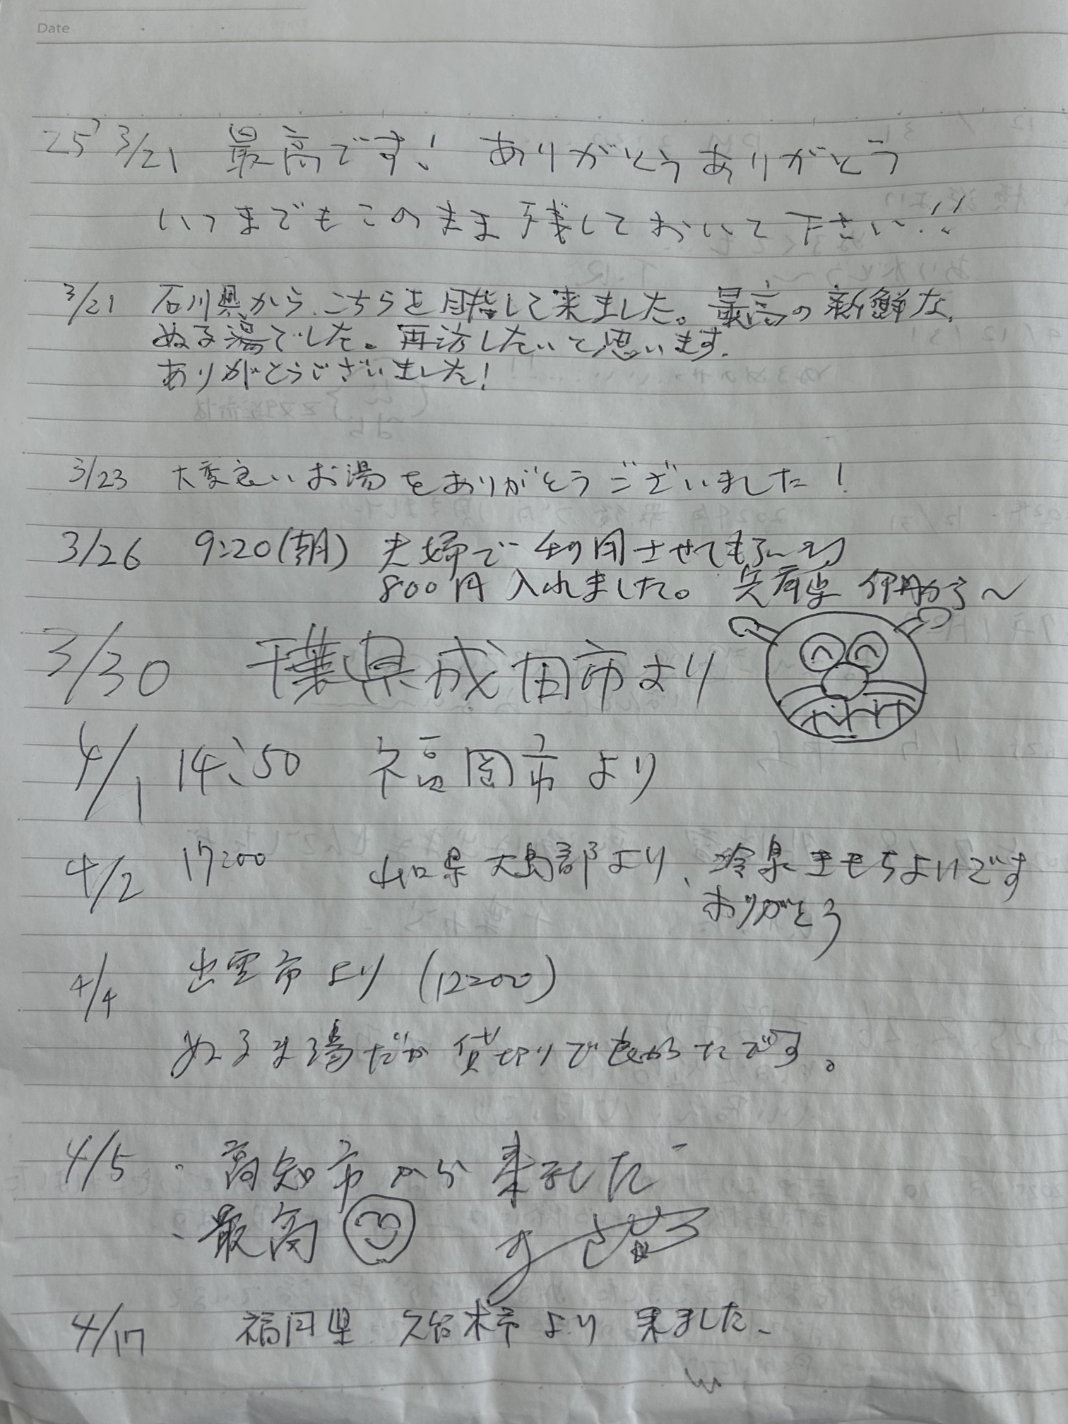 Date
25' 3/21 最高です! ありがとうありがとう
いつまでもこのまま残しておいて下さい!!
3/21 石川県から、こちらを目指して来ました。最高の新鮮な、
ぬる湯でした。再訪したいと思います。
ありがとうございました!
3/23 大変良いお湯をありがとうございました!
3/26 9:20(朝) 夫婦で利用させてもらい
800円入れました。兵庫県 伊丹から〜
3/30 千葉県成田市より
4/1 14:50 福岡市より
4/2 17:00 山口県大島郡より、冷泉きもちよいです
ありがとう
4/4 出雲市より (12:00)
ぬるま湯だが貸切りで良かったです。
4/5・高知市から来ました
・最高
4/17 福岡県 より来ました、